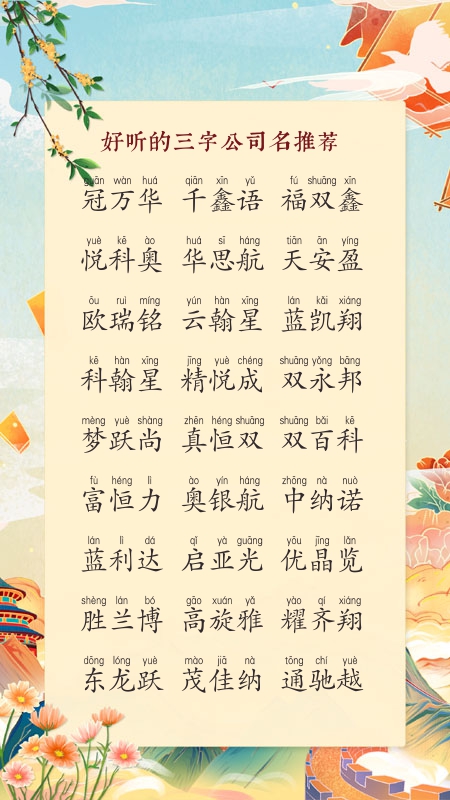 好听的三字公司名推荐
guān wàn huá qiān xīn yǔ fú shuāng xīn
冠万华 千鑫语 福双鑫
yuè kē ào huá sī háng tiān ān yíng
悦科奥 华思航 天安盈
ōu ruì míng yún hàn xīng lán kǎi xiáng
欧瑞铭 云翰星 蓝凯翔
kē hàn xīng jīng yuè chéng shuāng yǒng bāng
科翰星 精悦成 双永邦
mèng yuè shàng zhēn héng shuāng shuāng bǎi kē
梦跃尚 真恒双 双百科
fù héng lì ào yín háng zhōng nà nuò
富恒力 奥银航 中纳诺
lán lì dá qǐ yà guāng yōu jīng lǎn
蓝利达 启亚光 优晶览
shèng lán bó gāo xuán yǎ yào qí xiáng
胜兰博 高旋雅 耀齐翔
dōng lóng yuè mào jiā nà tōng chí yuè
东龙跃 茂佳纳 通驰越